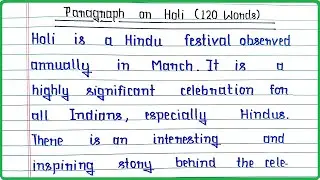 Paragraph on Holi (120 Words)
Holi is a Hindu festival observed
annually in March. It is a
highly significant celebration for
all Indians, especially Hindus.
There is an interesting and
inspiring story behind the cele-